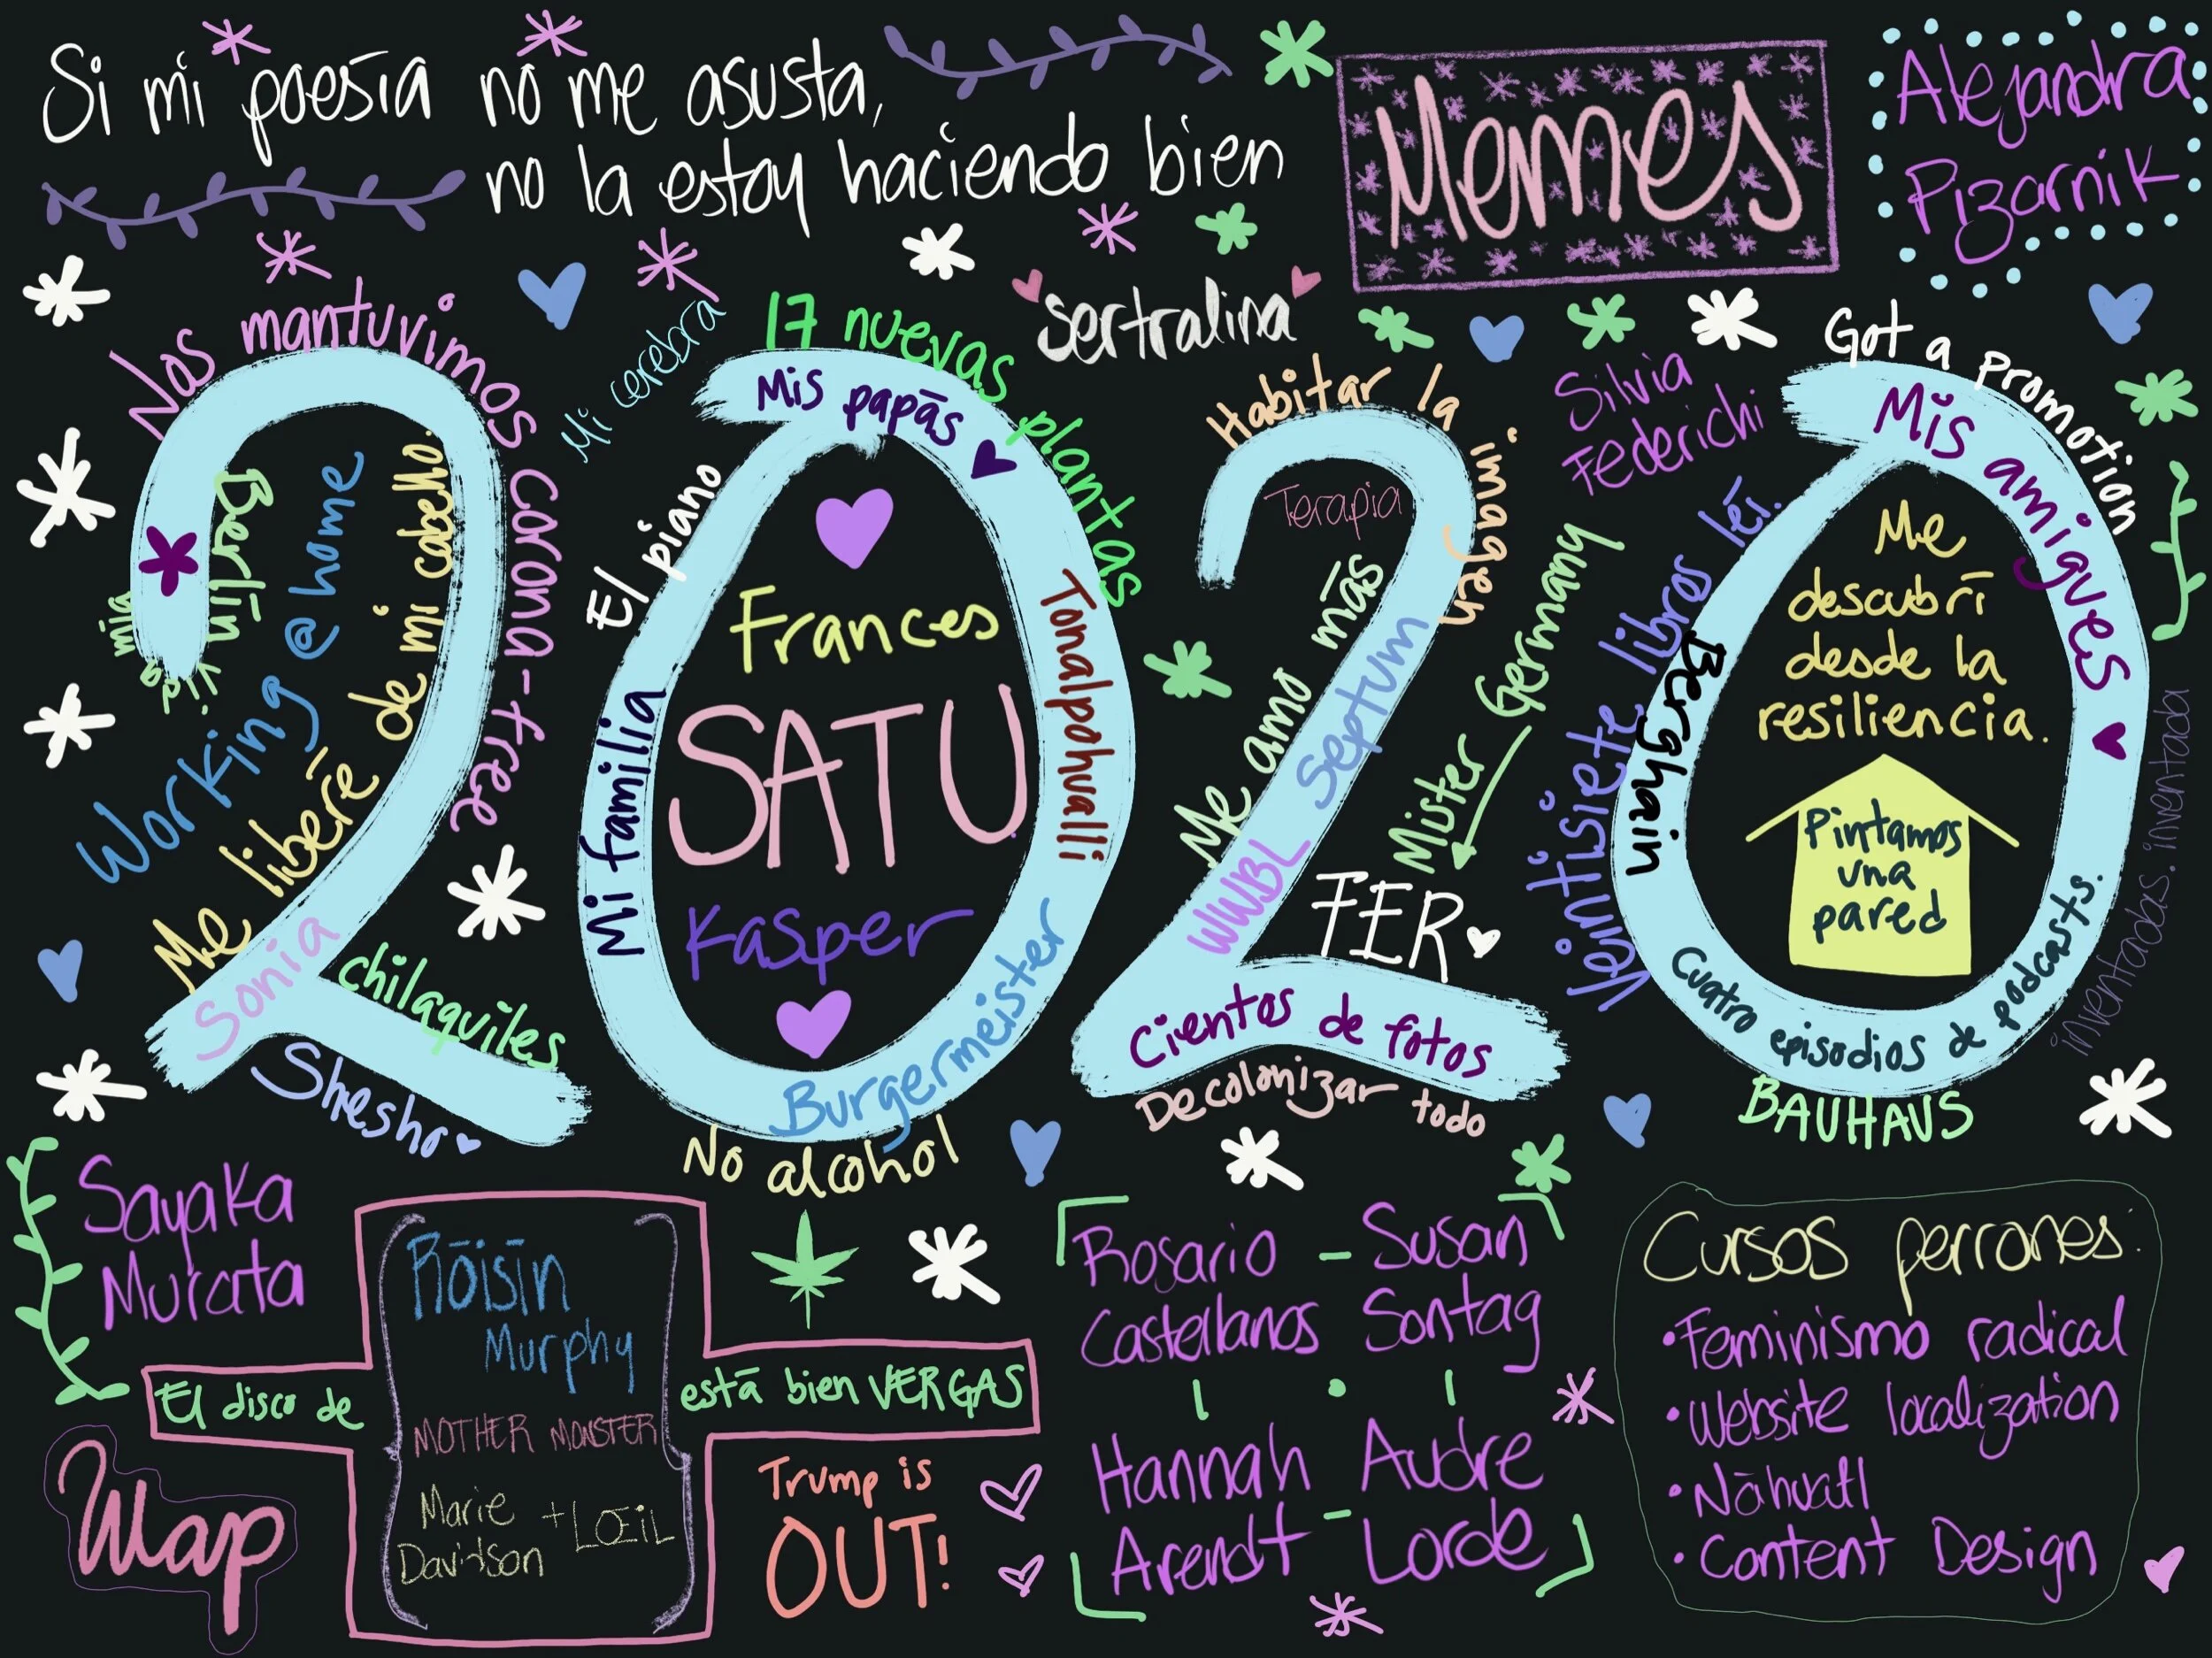 Si mi poesía no me asusta,
no la estoy haciendo bien
Memes
Alejandra
Pizarnik
Nos mantuvimos corona-free
Mi cerebra
17 nuevas plantas
Sertralina
Habitar la imagen
Silvia
Federichi
Got a promotion
2020
Berlín
mim
vida
Working @ home
Me liberé de mi cabello.
Sonia
chilaquiles
Shesho
El piano
Mis papás
Mi familia
Frances
SATU
Kasper
Tonalpohualli
Burgermeister
No alcohol
Terapia
Me amo más
Septum
WWBL
Mister Germany
FER
Cientos de fotos
Decolonizar todo
Veintisiete libros leí.
Berghain
Mis amigues
Me
descubrí
desde la
resiliencia.
Pintamos
una
pared
Cuatro episodios de podcasts.
inventadas.inventada
BAUHAUS
Sayaka
Murata
El disco de
Róisín
Murphy
MOTHER MONSTER
Marie
Davidson + LŒIL
está bien VERGAS
Wap
Trump is
OUT!
Rosario - Susan
Castellanos Sontag
Hannah Audre
Arendt - Lorde
Cursos perrones.
• Feminismo radical
• Website localization
• Náhuatl
• Content Design